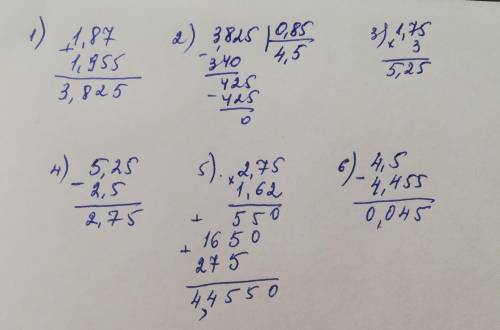 1) 1,87
+ 1,955
3,825
2) 3,825 | 0,85
- 340 4,5
425
- 425
0
3) 1,75
× 3
5,25
4) 5,25
- 2,5
2,75
5) . 2,75
× 1,62
+ 550
+ 1650
275
4,4550
6) 4,5
- 4,455
0,045